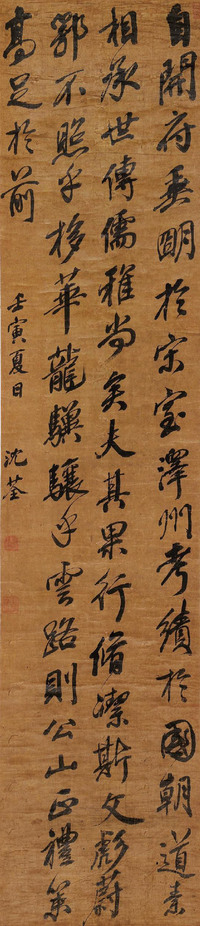 自開府垂明於宋室澤州考績於國朝道素
相承世傳儒雅尚矣夫其果行脩潔斯文彪蔚
鄂不照乎栘華龍驥驤乎雲路則公山正禮策
高足於前
壬寅夏日
沈荃